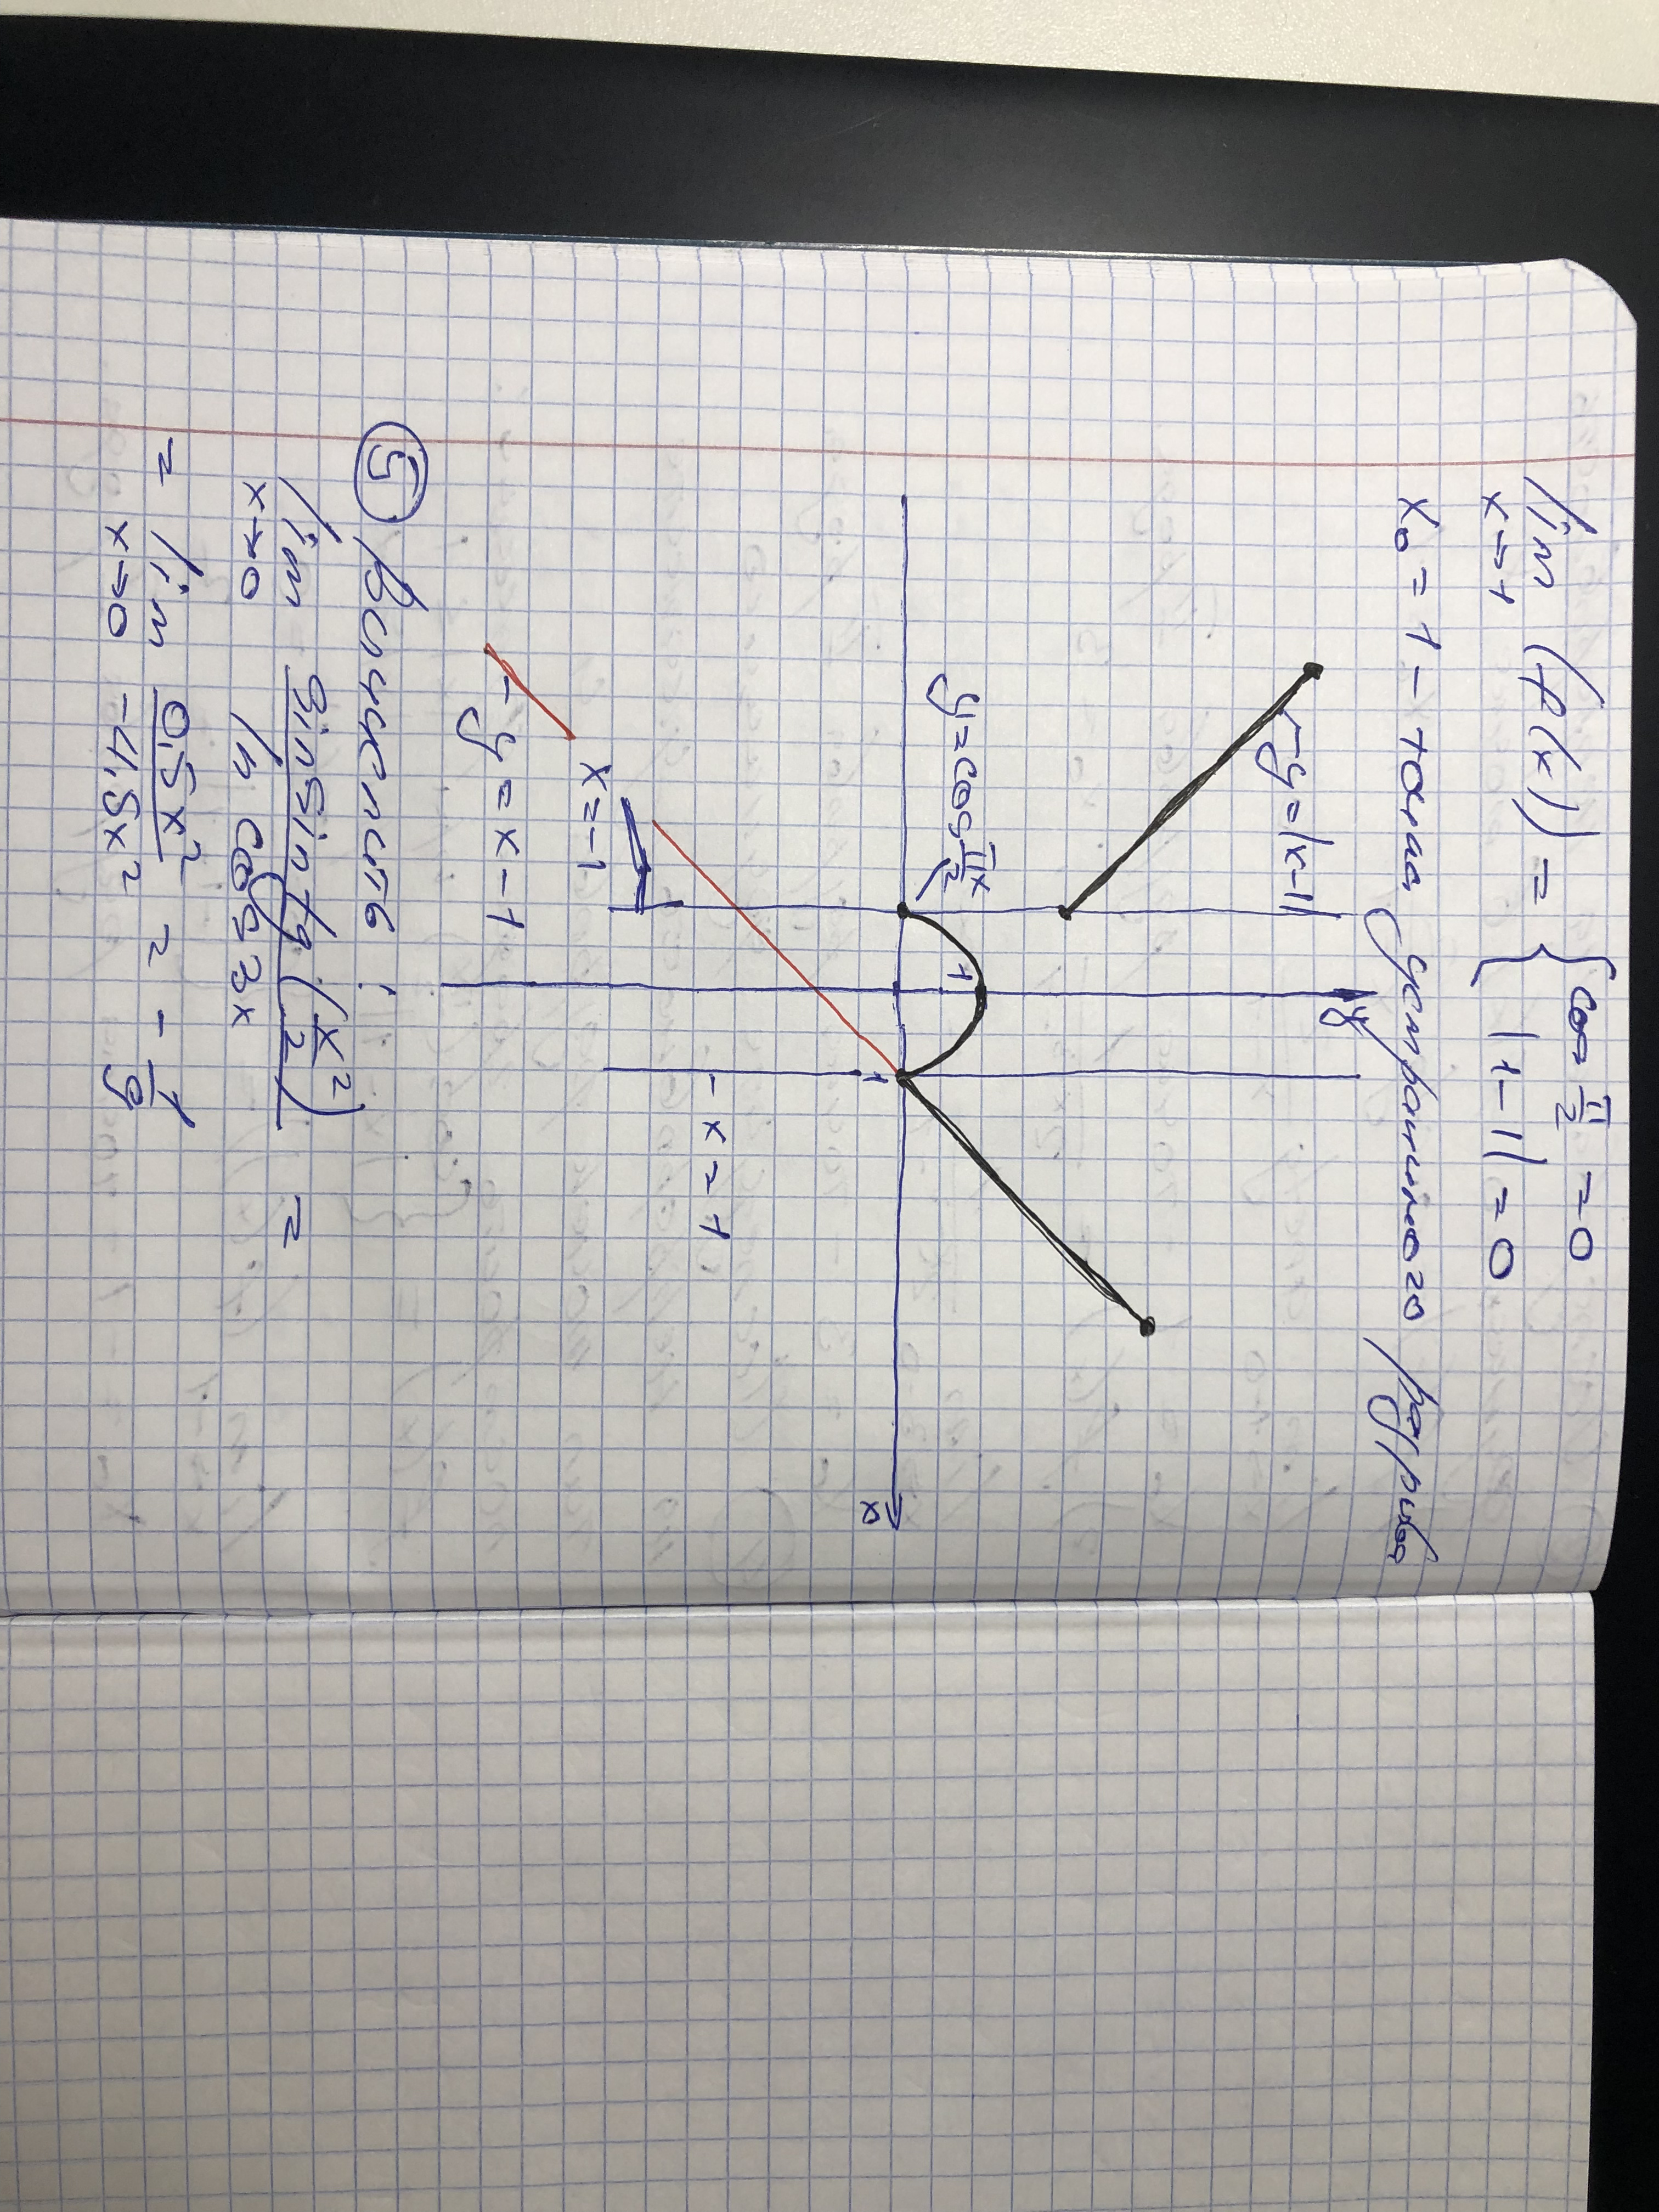 lim (f(x)) = { cos π/2 = 0
x→1 { |1-1| = 0
x₀ = 1 - точка устранимого разрыва
y
y=|x-1|
1
y=cos πx/2
x
1
- x = 1
x=-1
- y = x - 1
⑤ Вычислить:
lim sin sin tg (x²/2) / ln cos 3x =
x→0
= lim 0,5x² / -4,5x² = - 1/9
x→0